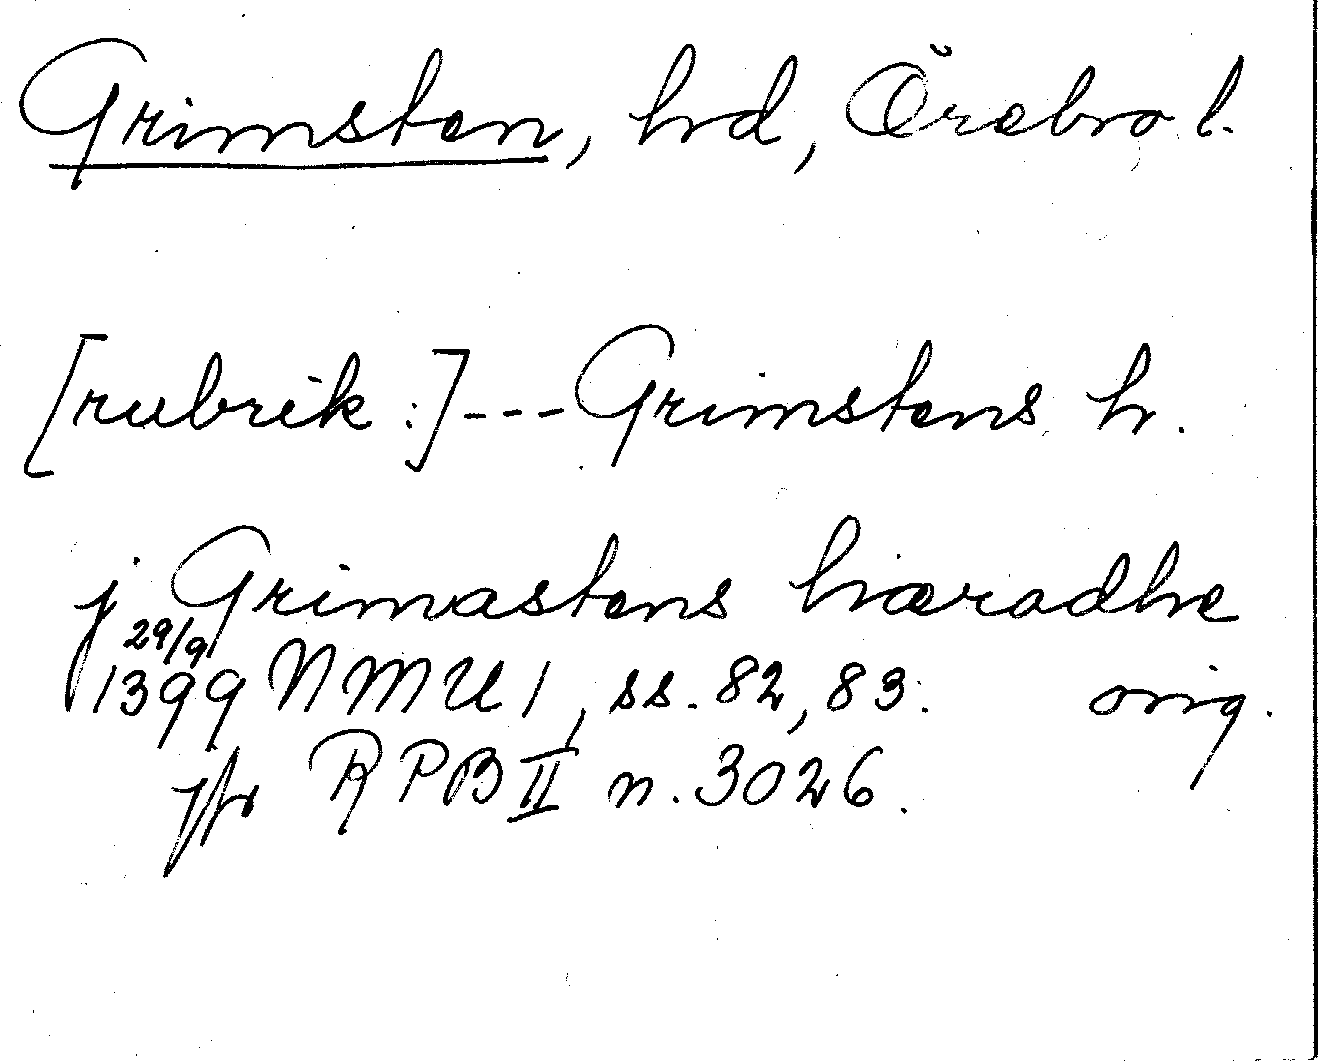 Grimsten, hd, Örebro l.
[rubrik:]---Grimstens h.
j Grimastens hæradhe
29/9
1399 NMU 1, ss. 82, 83. orig.
jfr RPB II n. 3026.